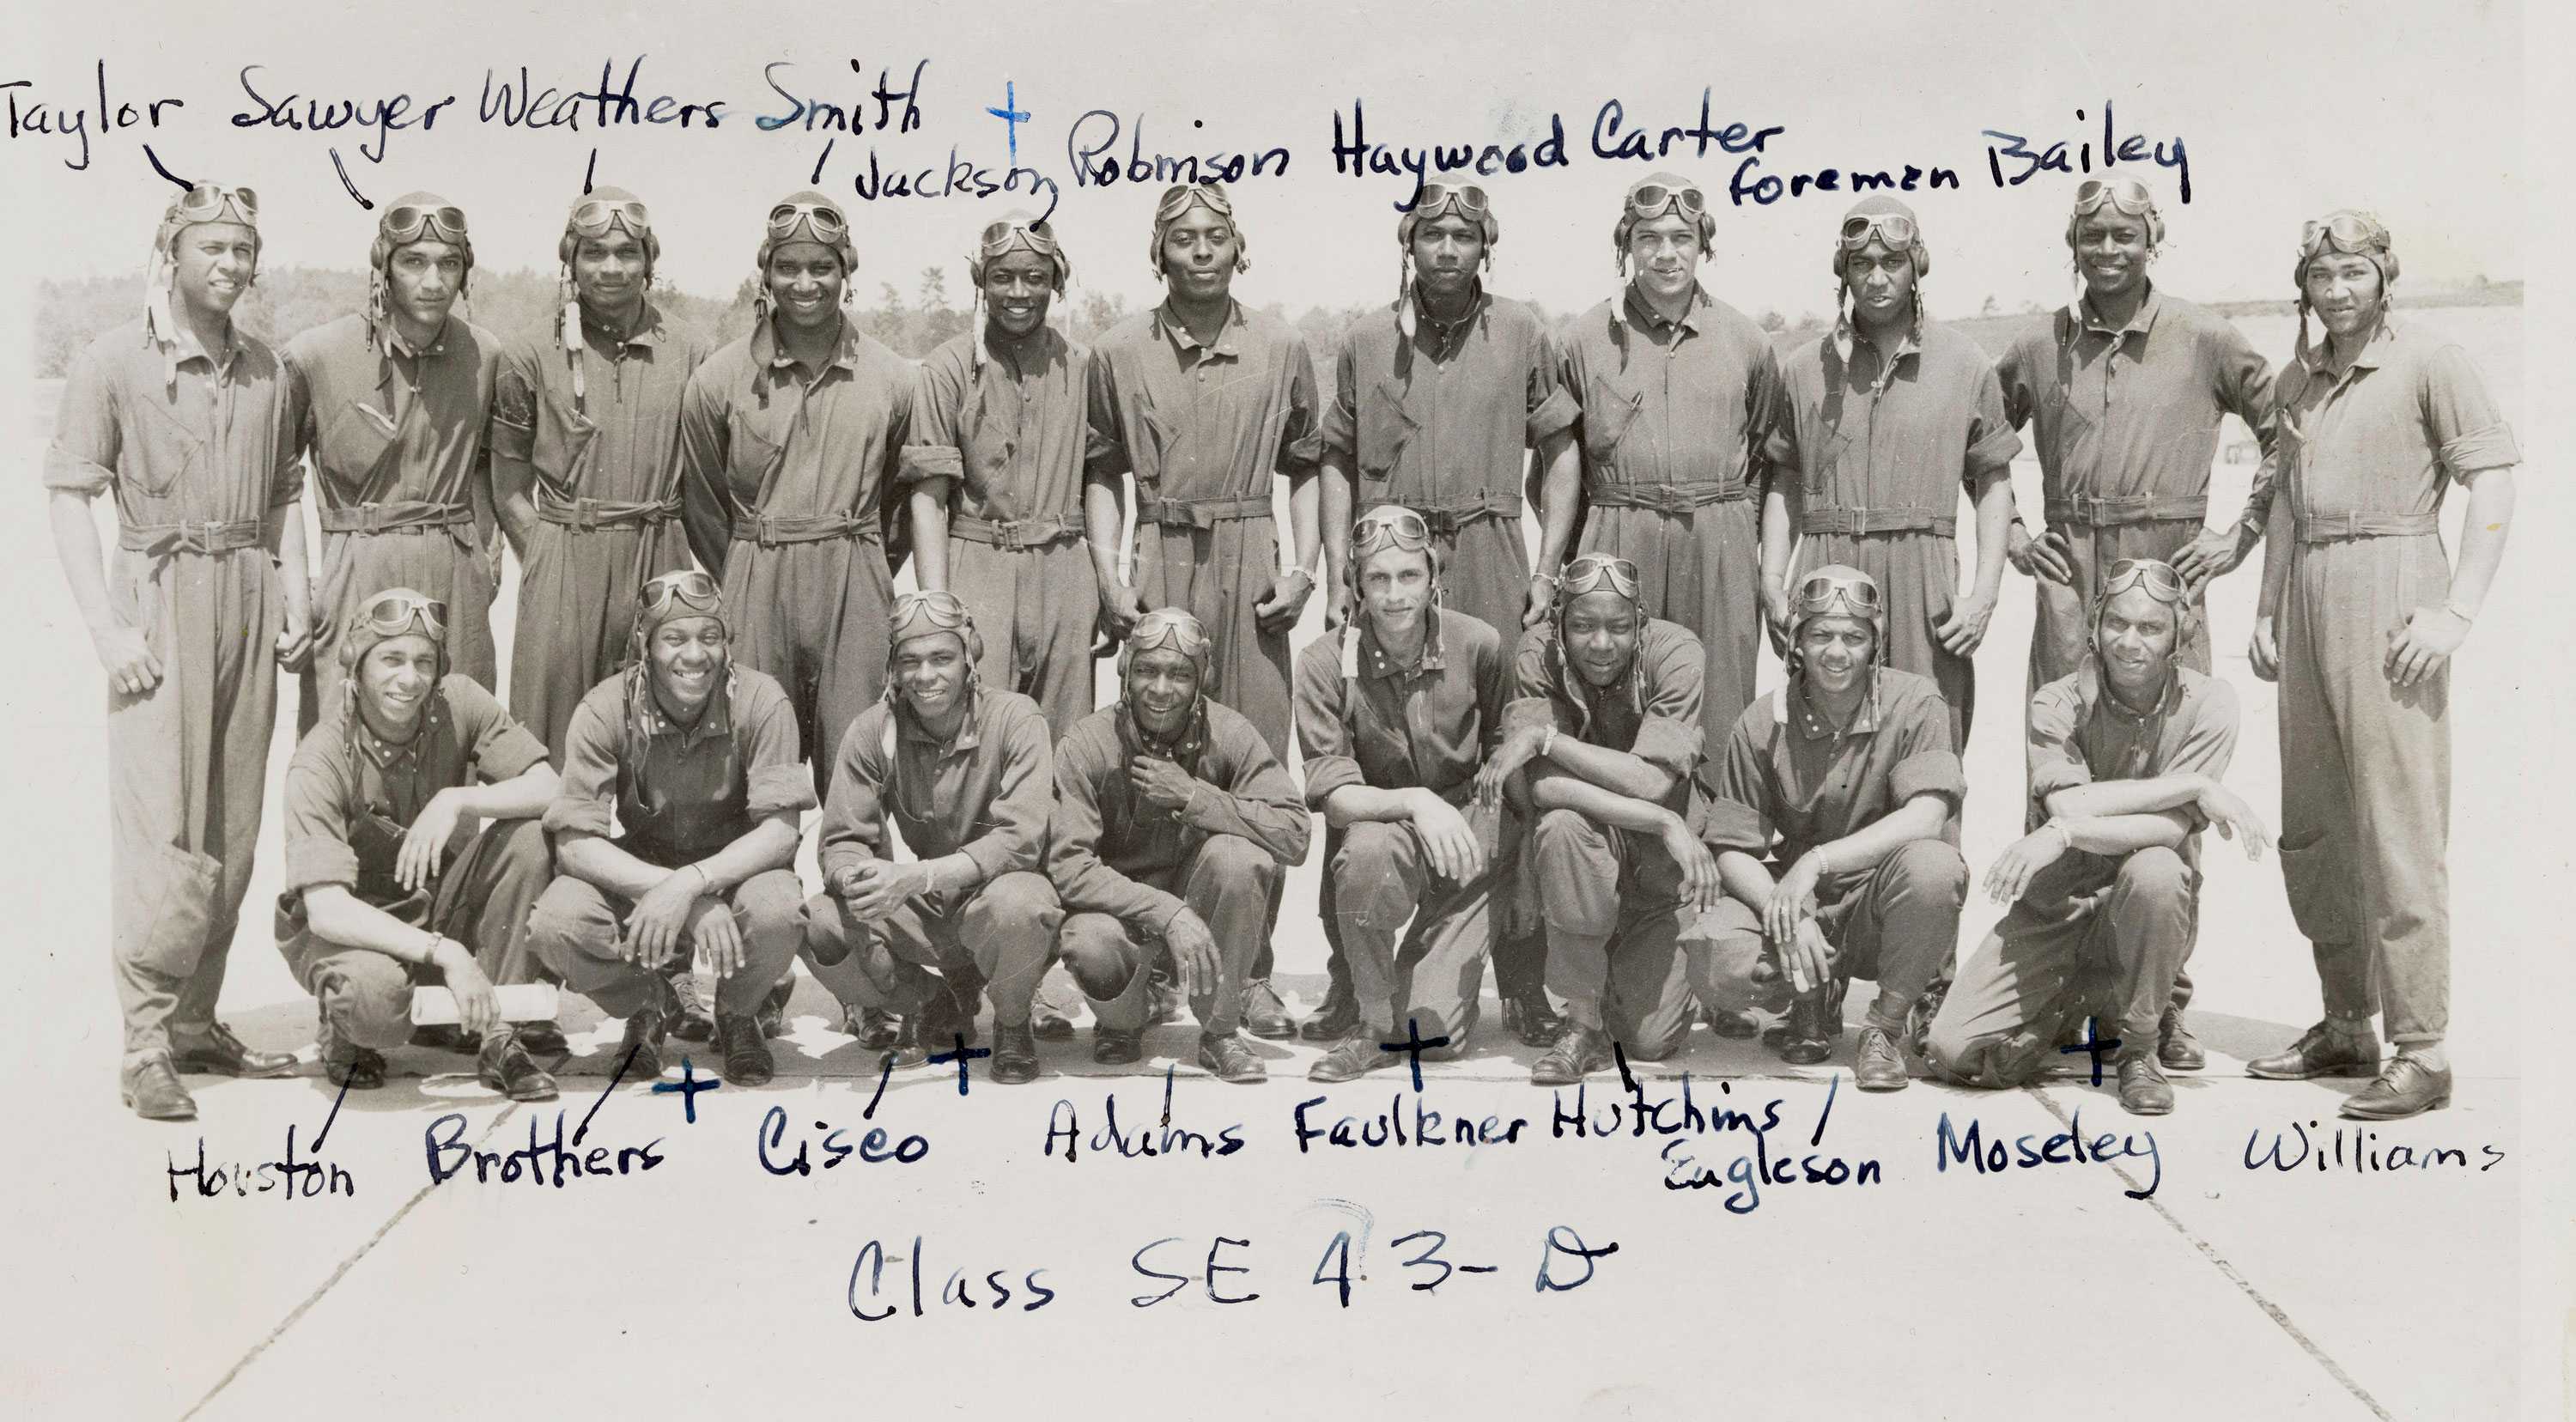 Taylor Sawyer Weathers Smith
Jackson Robinson Haywood Carter
Foremen Bailey
Houston Brothers Cisco Adams Faulkner Hutchins
Eagleson Moseley Williams
Class SE 43-D